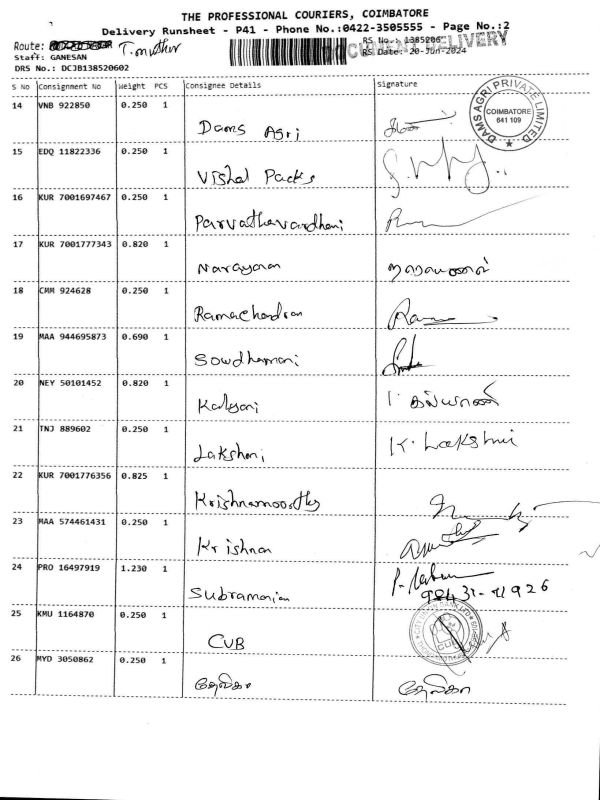 THE PROFESSIONAL COURIERS, COIMBATORE
Delivery Runsheet - P41 - Phone No.:0422-3505555 - Page No.:2
Route:
Staff: GANESAN
DRS No.: DCJB138520602
RS No.: 1385206
RS Date: 20-Jun-2024
DOCUMENT DELIVERY
S No Consignment No Weight PCS Consignee Details Signature
14 VNB 922850 0.250 1
Dams Agri
DAMS AGRI PRIVATE LIMITED
COIMBATORE
641 109
15 EDQ 11822336 0.250 1
Vishal Packs
16 KUR 7001697467 0.250 1
Parvathavardhani
17 KUR 7001777343 0.820 1
Narayanan நாராயணன்
18 CMM 924628 0.250 1
Ramachandran
19 MAA 944695873 0.690 1
Sowdhamani
20 NEY 50101452 0.820 1
Kalyani
21 TNJ 889602 0.250 1
Lakshmi K. Lakshmi
22 KUR 7001776356 0.825 1
Krishnamoorthy
23 MAA 574461431 0.250 1
Krishnan
24 PRO 16497919 1.230 1
Subramanian
25 KMU 1164870 0.250 1
CUB
26 MYD 3050862 0.250 1
தேவிகா தேவிகா